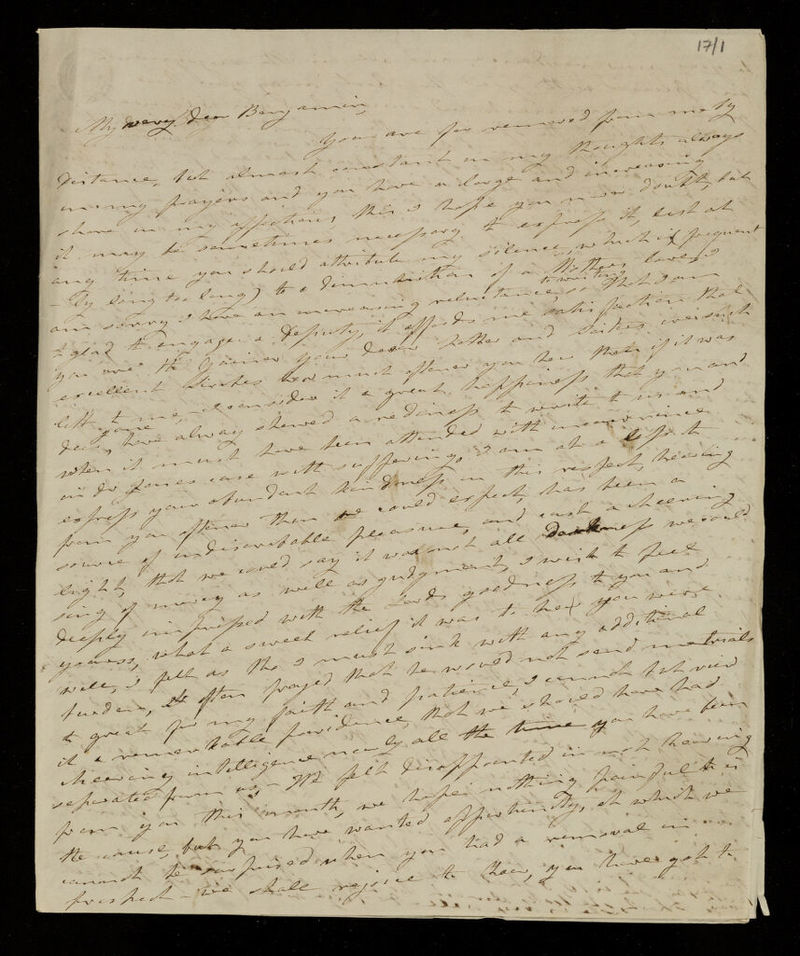 17/1
My very dear Benjamin,
You are far removed from me by
distance, but almost constant in my thoughts always
in my prayers and you have a large and increasing
share in my affections, this I hope you never doubt, but
it may be sometimes necessary to express it, lest at
any time you should attribute my silence, which is frequent
-ly long too long) to a diminution of a Mothers love, I
am sorry I have an increasing reluctance to writing, so that I am
glad to engage a Deputy, it affords me satisfaction that
you are the gainer your dear Father and Sisters
excellent must oftener you than if it was
left to me, I consider it a great happiness that you and
dear Jane have always shewed a rediness to write to us and
when it must have been attended with inconvenience
in dr Janes case with sufferings, I am at a loss to
express your abundant kindness in this respect, hearing
from you oftener than we could expect, has been a
source of indiscribable pleasure, and cast a cheering
light, that we could say it was not all darkness we could
sing of mercy as well as judgment, I wish to feel
deeply impressed with the Lords goodness to you and
yours, what a sweet relief it was to hear you were
well, I felt as tho I must sink with any additional
burden, & often prayed that he would not send materials
to great for my faith and patience, I cannot but view
it a remarkable providence, that we should have had
cheering intelligence nearly all the time you have been
separated from us, - We felt disappointed in not hearing
from you this month, we hope nothing painful is
the cause, but you have wanted opportunity, at which we
cannot be surprised when you had a removal in
prospect - we shall rejoice to hear, you have got to